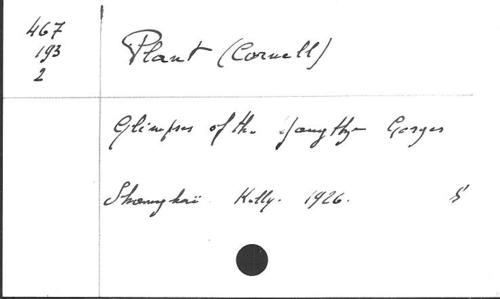 467
193
2
Plant (Cornell)
Glimpses of the Yangtze Gorges
Shanghaï. Kelly. 1926. 8°